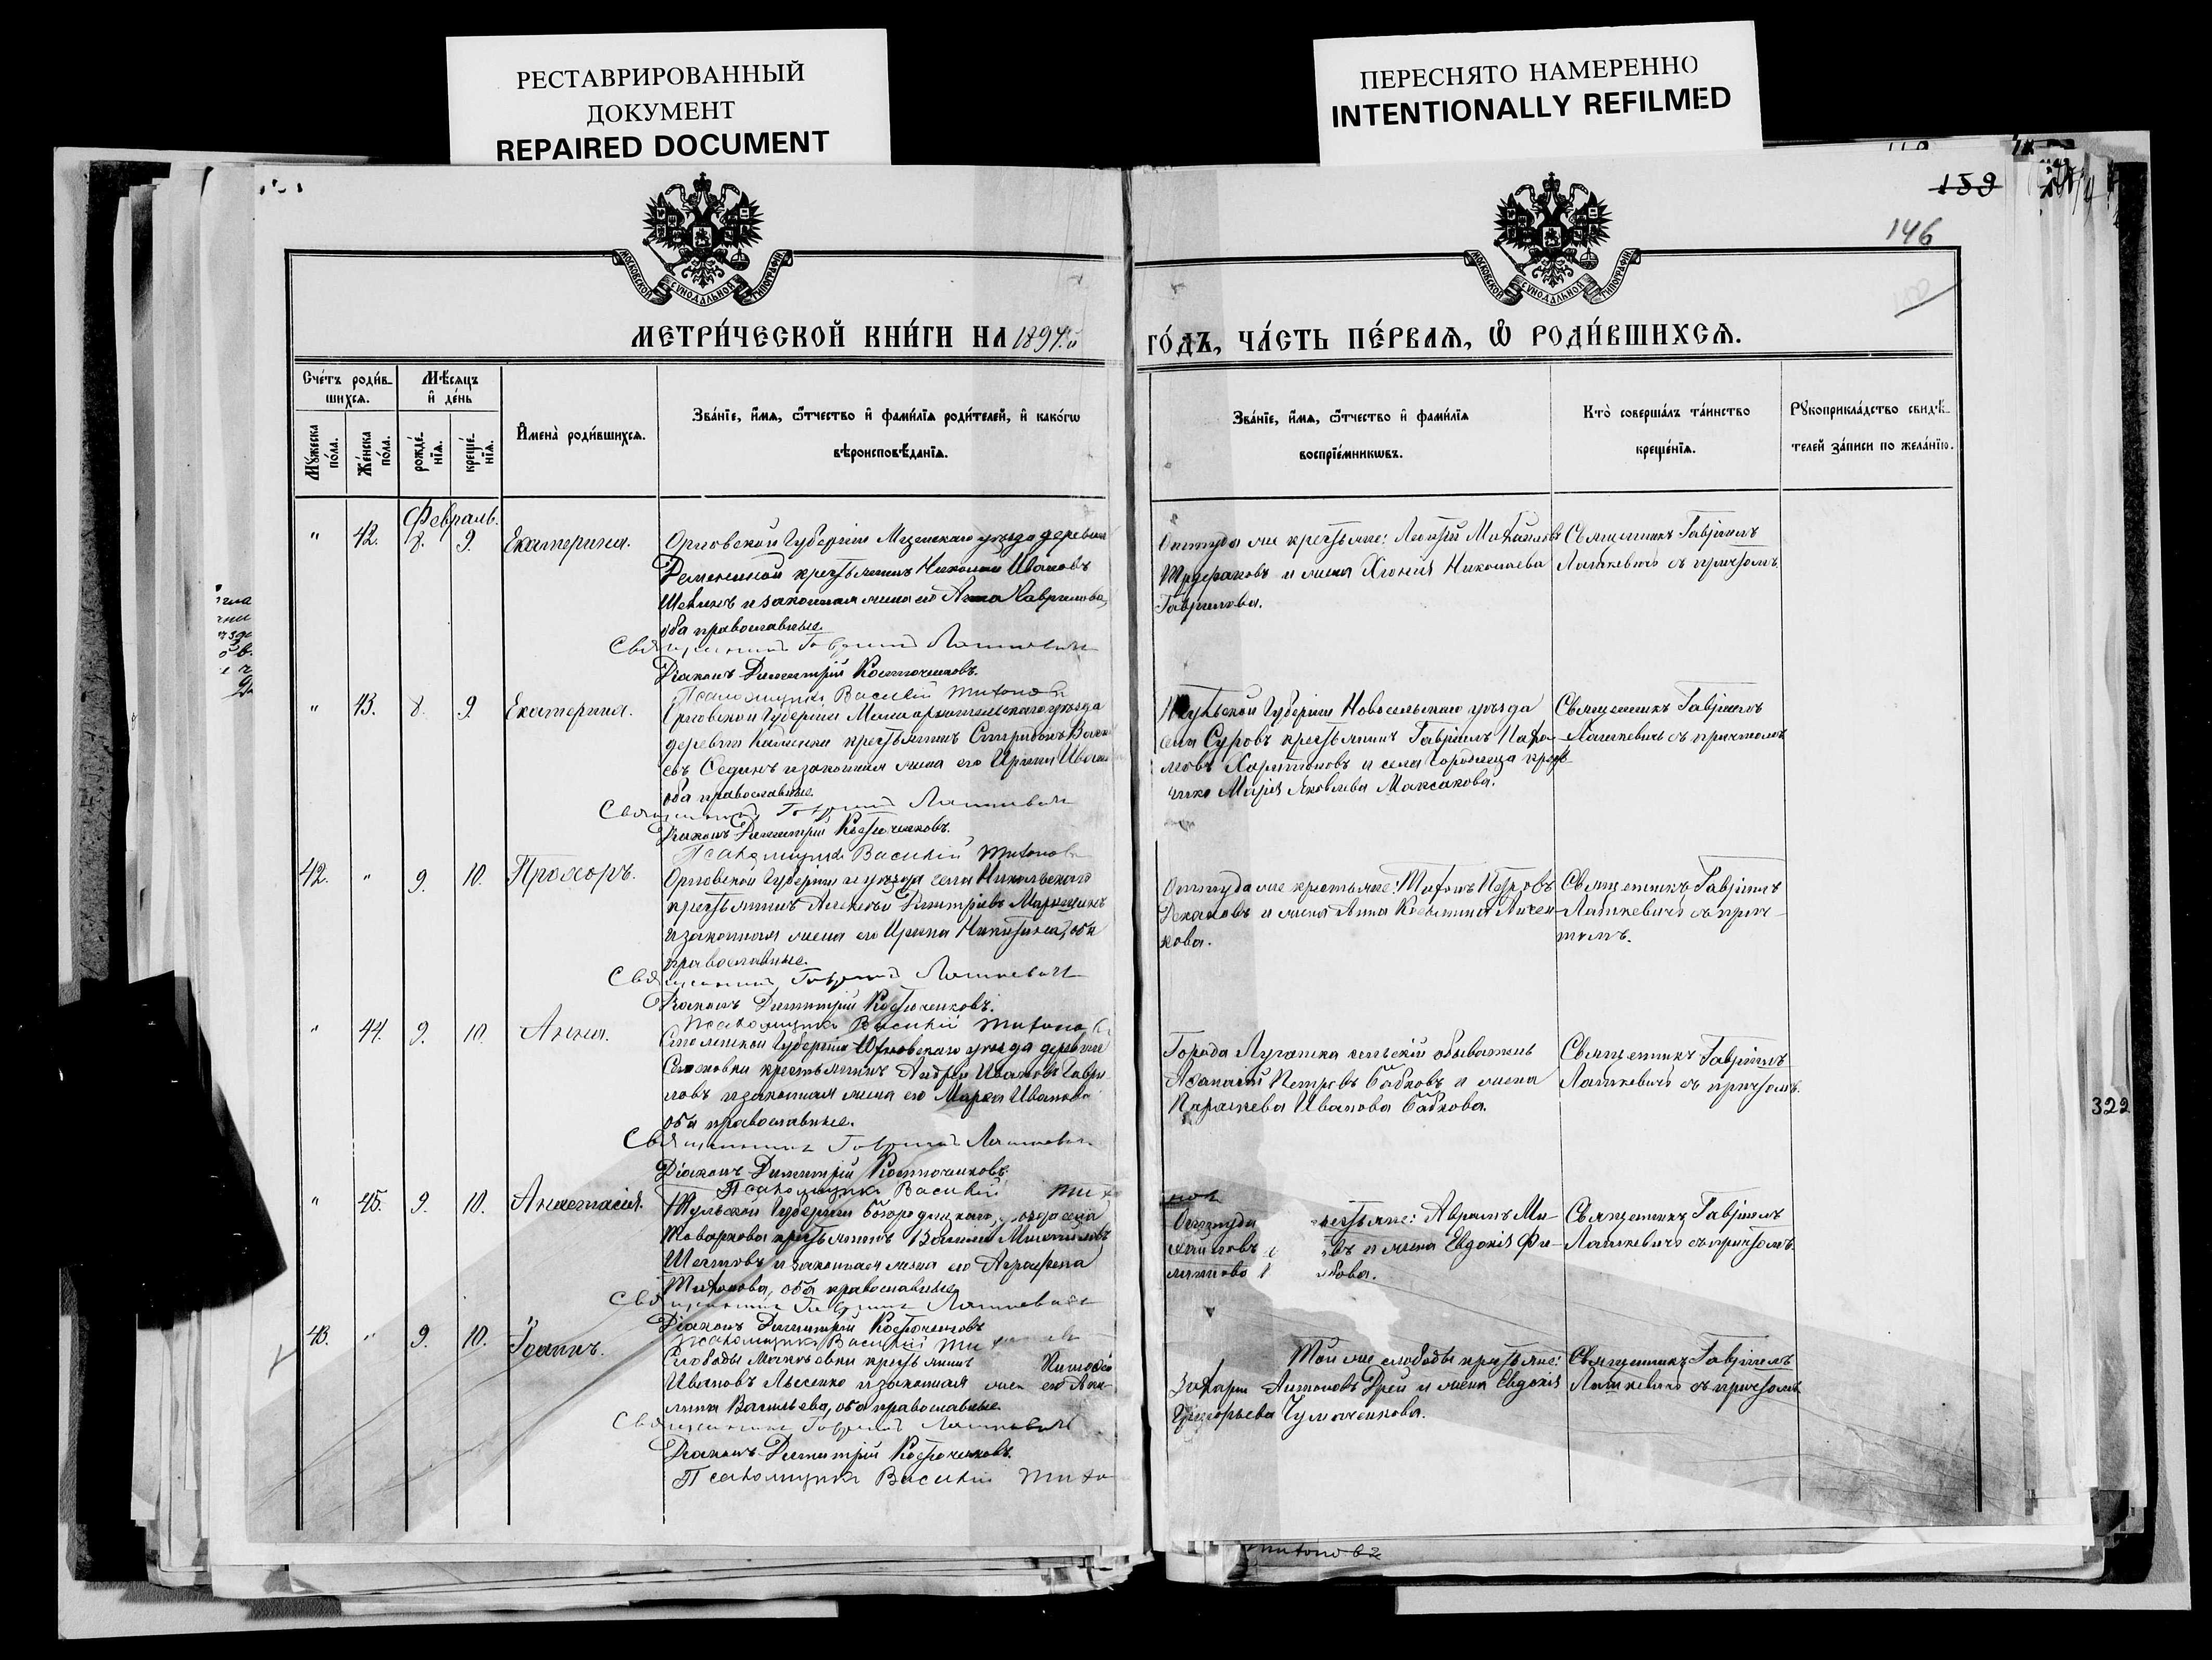 РЕСТАВРИРОВАННЫЙ
ДОКУМЕНТ
REPAIRED DOCUMENT
ПЕРЕСНЯТО НАМЕРЕННО
INTENTIONALLY REFILMED
159
146
МОСКОВСКОЙ СѴНОДАЛЬНОЙ ТИПОГРАФІИ
МОСКОВСКОЙ СѴНОДАЛЬНОЙ ТИПОГРАФІИ
МЕТРИ́ЧЕСКОЙ КНИ́ГИ НА 1897й
ГО́ДЪ, ЧА́СТЬ ПЕ́РВАЯ, Ѡ҆ РОДИ́ВШИХСЯ.
Сче́тъ роди́в-
шихся.
Мѣ́сяцъ
и҆ де́нь
Мꙋ́жеска
по́ла.
Же́нска
по́ла.
рожде́-
нїя.
креще́-
нїя.
И҆мена̀ роди́вшихся.
Зва́нїе, и҆́мя, ѻ҆́тчество и҆ фами́лїя роди́телей, и҆ како́гѡ
вѣроисповѣ́данїя.
Зва́нїе, и҆́мя, ѻ҆́тчество и҆ фами́лїя
воспрїе́мникѡвъ.
Кто̀ соверша́лъ та́инство
креще́нїя.
Рꙋкоприкла́дство свидѣ́-
телей за́писи по жела́нїю.
Февраль.
" 42. 8. 9. Екатерина.
Орловской Губерніи Мценскаго уѣзда деревни
крестьянинъ Николай Ивановъ
и законная жена его Анна Гаврилова,
оба православные.
Священникъ Гавріилъ Лашкевичъ
Діаконъ Димитрій Косточековъ.
Псаломщикъ Василій Тихоновъ
Оттуда же крестьяне: Михайловъ
и жена Хіонія Николаева
Гаврилова.
Священникъ Гавріилъ
Лашкевичъ съ причтомъ.
" 43. 8. 9. Екатерина.
Орловской Губерніи Малоархангельскаго уѣзда
деревни Каменки крестьянинъ
евъ Сединъ и законная жена его Ирина
оба православные.
Священникъ Гавріилъ Лашкевичъ
Діаконъ Димитрій Косточековъ.
Псаломщикъ Василій Тихоновъ
Тульской Губерніи Новосильскаго уѣзда
села Суровъ крестьянинъ Гавріилъ
Харитоновъ и села Городища
Марія Яковлева Максакова.
Священникъ Гавріилъ
Лашкевичъ съ причтомъ
42. " 9. 10. Прохоръ.
Орловской Губерніи и уѣзда села Никольскаго
крестьянинъ Алексѣй Димитріевъ
и законная жена его Ирина Никитина, оба
православные.
Священникъ Гавріилъ Лашкевичъ
Діаконъ Димитрій Косточековъ.
Псаломщикъ Василій Тихоновъ
Оттуда же крестьяне: Тихонъ Петровъ
Декановъ и жена Анна Козьмина
кова.
Священникъ Гавріилъ
Лашкевичъ съ прич-
томъ.
" 44. 9. 10. Анна.
Смоленской Губерніи Юхновскаго уѣзда деревни
крестьянинъ Андрей Ивановъ Гаври-
ловъ и законная жена его Марѳа Иванова
оба православные.
Священникъ Гавріилъ Лашкевичъ
Діаконъ Димитрій Косточековъ.
Псаломщикъ Василій Ти
Города Луганска сельскій обыватель
Аѳанасій Петровъ Бабковъ и жена
Параскева Иванова Бабкова.
Священникъ Гавріилъ
Лашкевичъ съ причтомъ.
" 45. 9. 10. Анастасія.
Тульской Губерніи Богородицкаго уѣзда села
Товаркова крестьянинъ Василій
и законная жена его Аграфена
Тихонова, оба православные.
Священникъ Гавріилъ Лашкевичъ
Діаконъ Димитрій Косточековъ
Псаломщикъ Василій Ти
Оттуда крестьяне: Авраамъ Ми-
хайловъ и жена Евдокія Фи-
Священникъ Гавріилъ
Лашкевичъ съ причтомъ.
43. " 9. 10. Іоаннъ.
Слободы крестьянинъ
Ивановъ Лысенко и законная жена его Аку-
лина Васильева, оба православные
Священникъ Гавріилъ Лашкевичъ
Діаконъ Димитрій Косточековъ.
Псаломщикъ Василій Тихо
Той же слободы крестьяне:
Захарій Антоновъ и жена Евдокія
Григорьева
Священникъ Гавріилъ
Лашкевичъ съ причтомъ
322